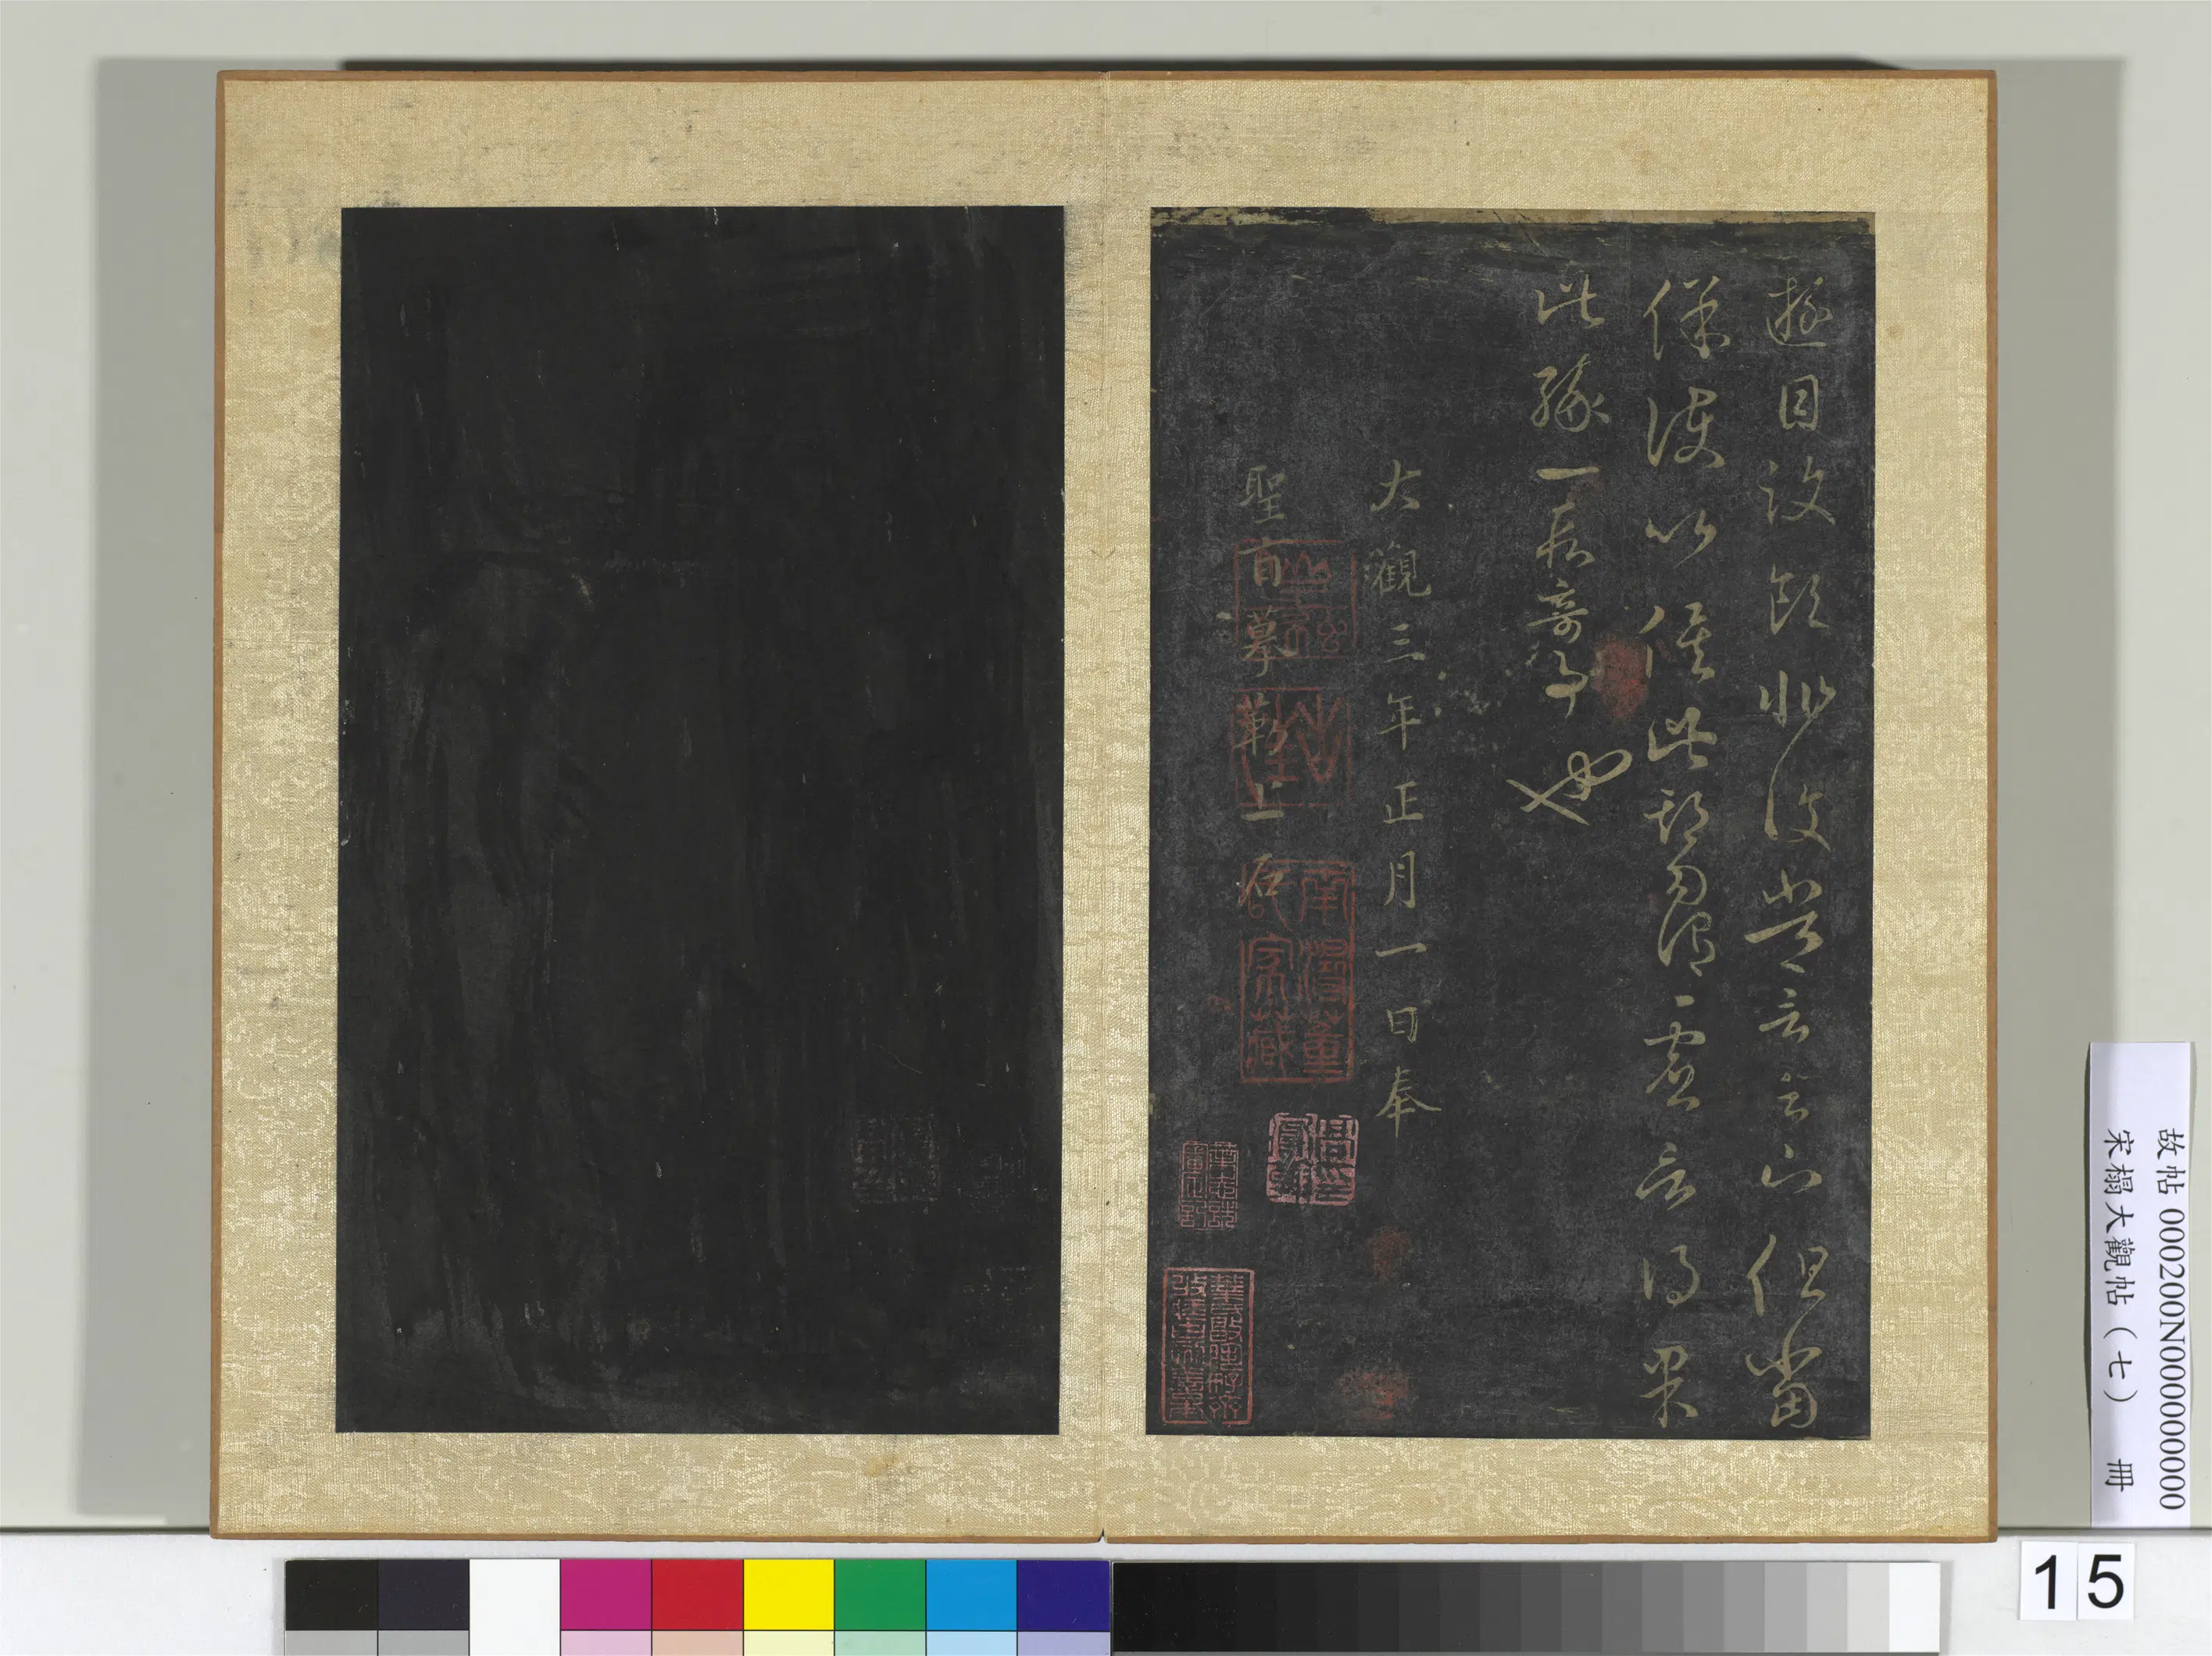 遊目意足非復常言足下但當
保護以俟此期勿謂虛言得果
此緣一段奇事也
大觀三年正月一日奉
聖旨摹勒上石
南潯董
氏家藏
故帖 000200N000000000
宋搨大觀帖(七) 冊
15